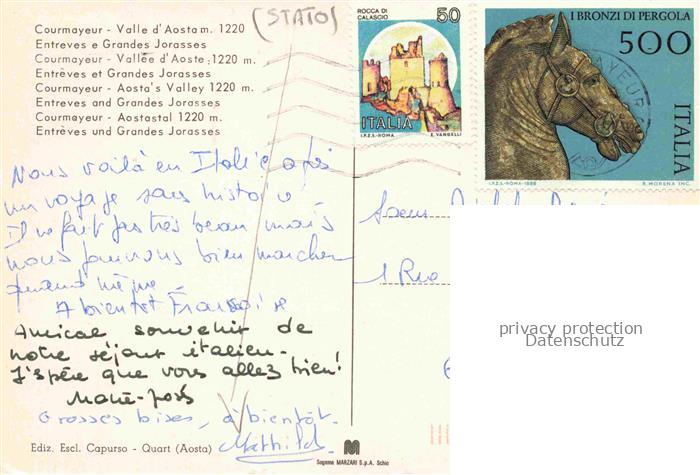 (STATO)
Courmayeur - Valle d'Aosta m. 1220
Entreves e Grandes Jorasses
Courmayeur - Vallée d'Aoste 1220 m.
Entrèves et Grandes Jorasses
Courmayeur - Aosta's Valley 1220 m.
Entreves and Grandes Jorasses
Courmayeur - Aostastal 1220 m.
Entrèves und Grandes Jorasses
ROCCA DI CALASCIO
50
ITALIA
I.P.Z.S.-ROMA E. VANGELLI
I BRONZI DI PERGOLA
500
ITALIA
I.P.Z.S.-ROMA-1988 R. MORENA INC.
Nous voilà en Italie après
un voyage sans histoire
Il ne fait pas très beau mais
nous pouvons bien marcher
quand même
A bientôt Françoise
Amical souvenir de
notre séjour italien.
J'espère que vous allez bien!
Grosses bises, à bientôt.
Mathilde
1 Rue
privacy protection
Datenschutz
Ediz. Escl. Capurso - Quart (Aosta)
M
Sagoma MARZARI S.p.A. Schio